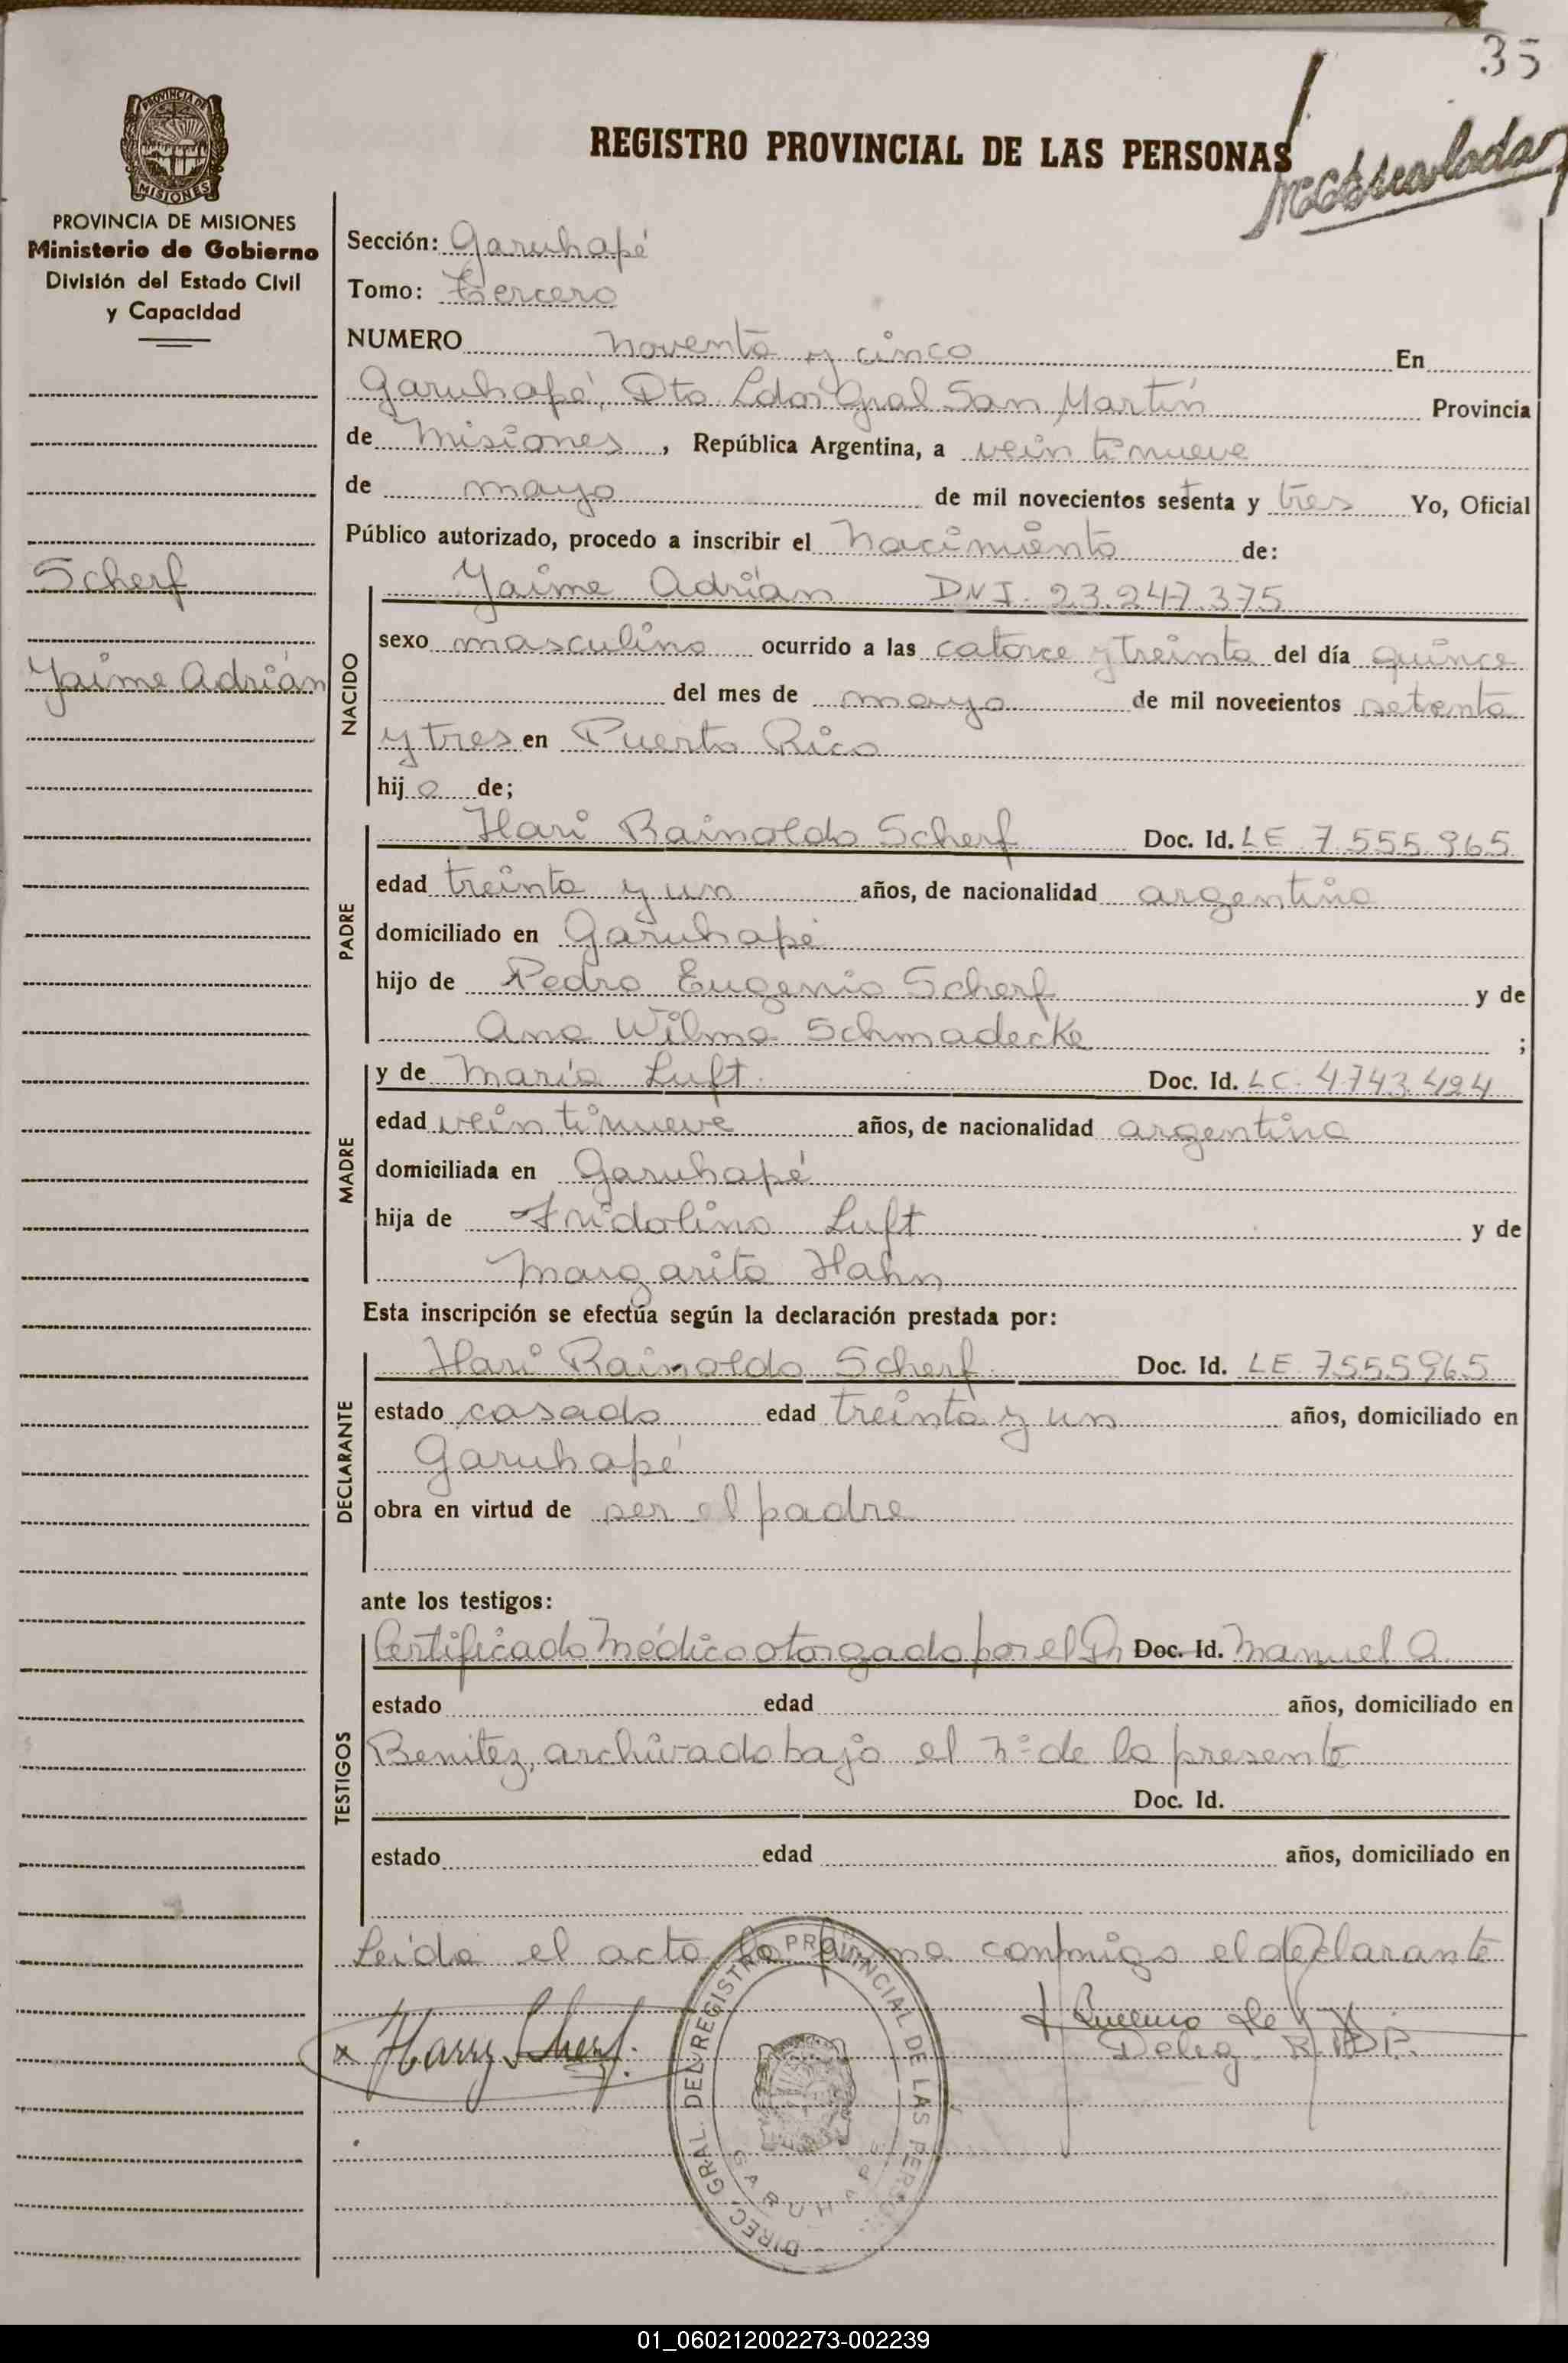 35
PROVINCIA DE
MISIONES
REGISTRO PROVINCIAL DE LAS PERSONAS
PROVINCIA DE MISIONES
Ministerio de Gobierno
División del Estado Civil
y Capacidad
Scherf
Jaime Adrián
Sección: Garuhapé
Tomo: Tercero
NUMERO noventa y cinco En
Garuhapé, Dto Ldor Gral San Martín Provincia
de Misiones, República Argentina, a veintinueve
de mayo de mil novecientos setenta y tres Yo, Oficial
Público autorizado, procedo a inscribir el Nacimiento de:
NACIDO
Jaime Adrián DNI. 23.247.375
sexo masculino ocurrido a las catorce y treinta del día quince
del mes de mayo de mil novecientos setenta
y tres en Puerto Rico
hijo de;
PADRE
Hari Rainoldo Scherf Doc. Id. LE 7.555.965
edad treinta y un años, de nacionalidad argentina
domiciliado en Garuhapé
hijo de Pedro Eugenio Scherf y de
Ana Wilma Schmadecke ;
MADRE
y de María Luft Doc. Id. LC. 4.743.494
edad veintinueve años, de nacionalidad argentina
domiciliada en Garuhapé
hija de Fridolino Luft y de
Margarita Hahn
Esta inscripción se efectúa según la declaración prestada por:
DECLARANTE
Hari Rainoldo Scherf Doc. Id. LE 7.555.965
estado casado edad treinta y un años, domiciliado en
Garuhapé
obra en virtud de ser el padre
ante los testigos:
TESTIGOS
Certificado Médico otorgado por el Dr Doc. Id. Manuel A.
estado edad años, domiciliado en
Benitez, archivado bajo el nº de la presente
Doc. Id.
estado edad años, domiciliado en
Leída el acta la firma conmigo el declarante
x Harry Scherf.
Deleg. R.P.P.
DIREC. GRAL. DEL REGISTRO PROVINCIAL DE LAS PERSONAS
GARUHAPE
01_060212002273-002239